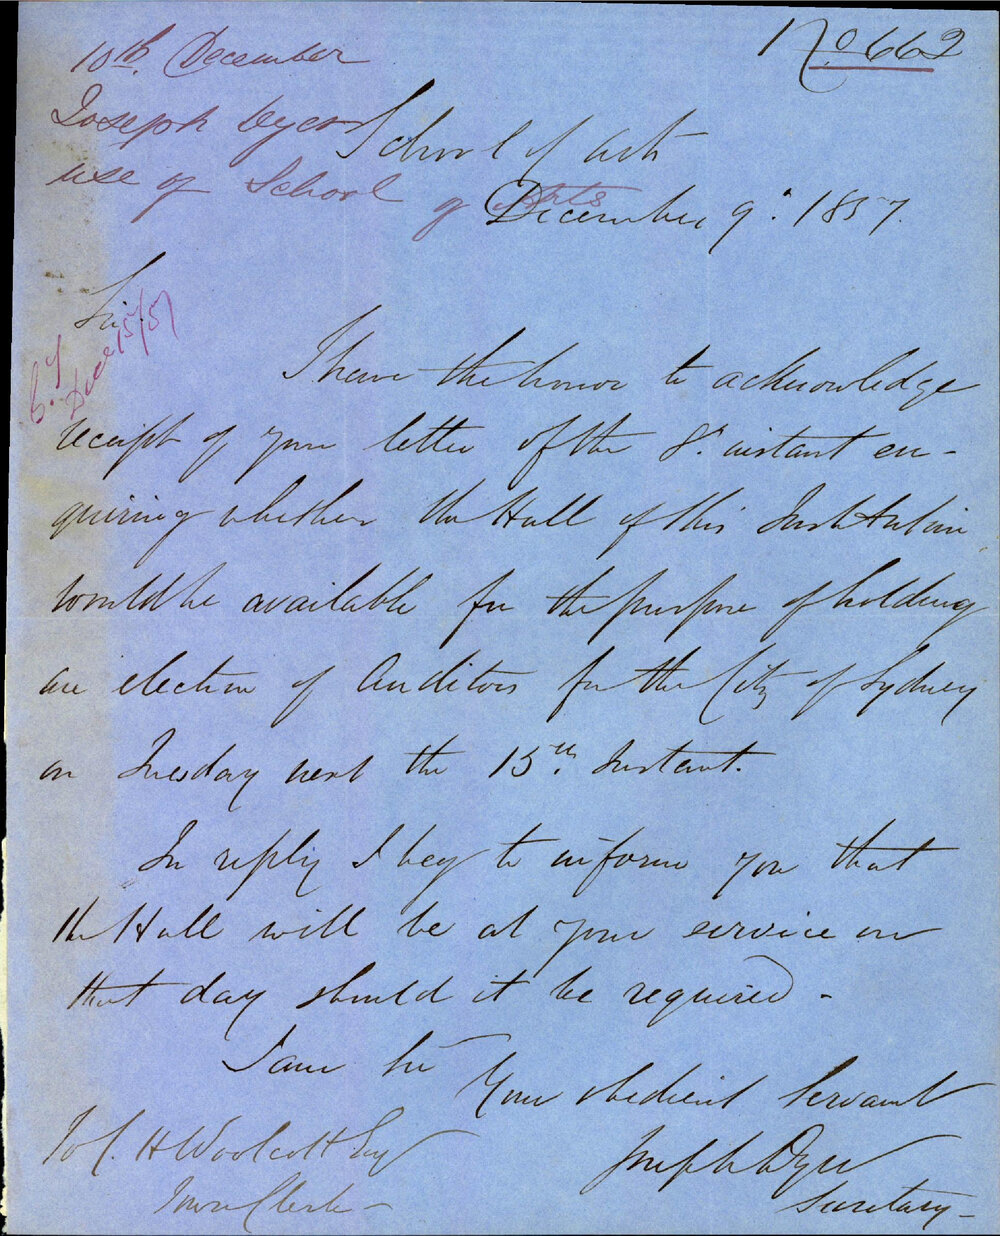 No. 662
10th. December
Joseph Dyer
use of School of Arts
School of Arts
December 9. 1857.
Sir
Decr 15/57
I have the honor to acknowledge
receipt of your letter of the 8th. instant en-
quiring whether the Hall of this Institution
would be available for the purpose of holding
an election of Auditors for the City of Sydney
on Tuesday next the 15th. Instant.
In reply I beg to inform you that
the Hall will be at your service on
that day should it be required -
I am Sir
Your obedient Servant
Joseph Dyer
Secretary -
To C. H Woolcott Esq
Town Clerk -